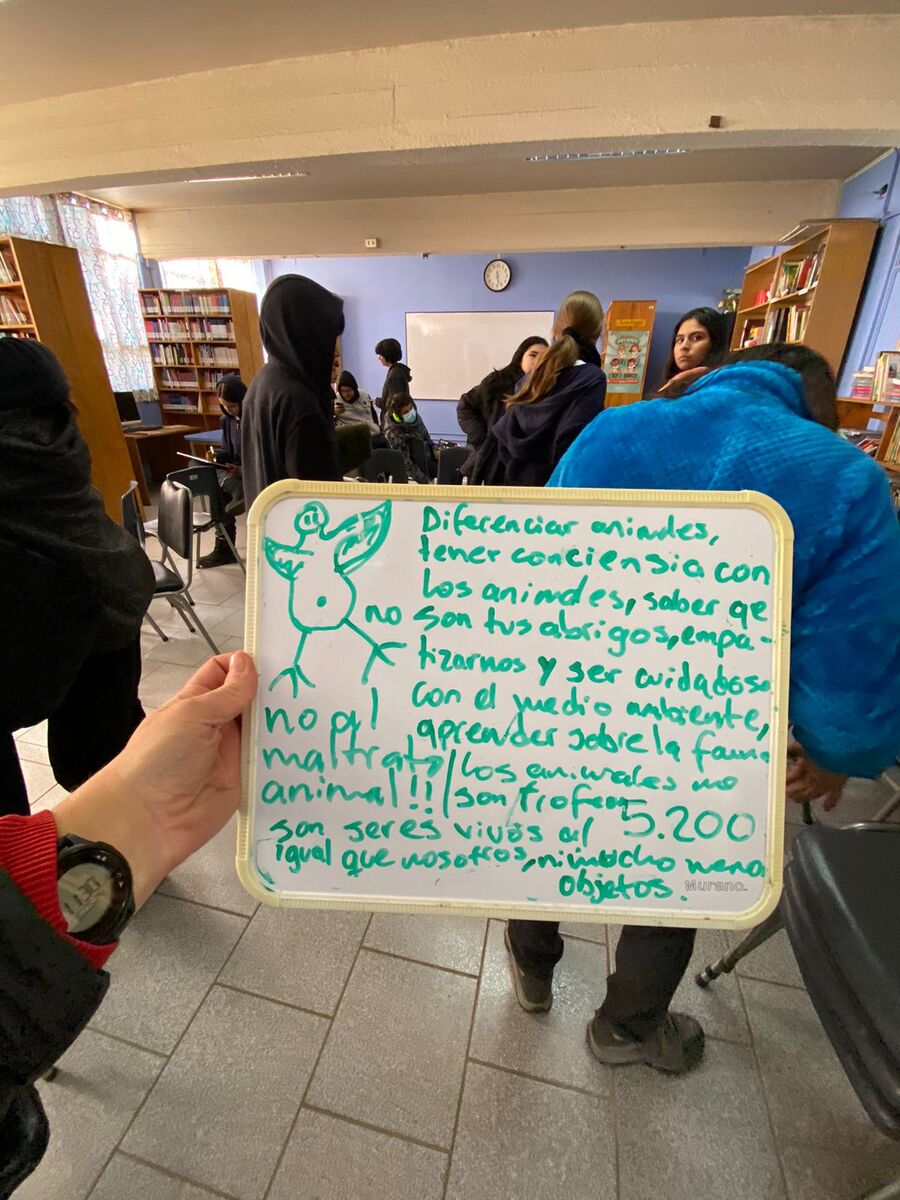 Diferenciar animales,
tener conciensia con
los animales, saber qe
no son tus abrigos, empa-
tizarnos y ser cuidadoso
con el medio ambiente,
aprender sobre la fauna
no al
maltrato
animal!!
los animales no
son trofeos
5.200
son seres vivos al
igual que nosotros, ni mucho menos
objetos.
Murano